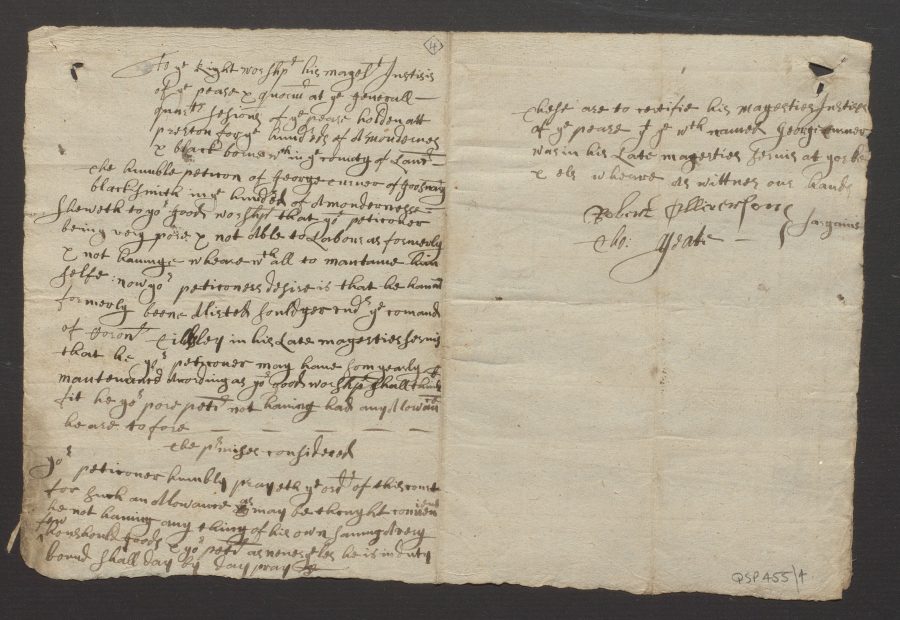 4
To ye Right worshpll his magests Justisis
of ye pease & quorum at ye Generall
quartr Sesions of ye pease holden att
preston for ye hundrd of Amondernes
& black bourn wth in ye County of Lancr
The humble peticon of George Turner of Goosnarg
blacksmith in ye hundrd of Amondernesse
Sheweth to yor good worshps that yor peticoner
being very pore & not Able to Labour as formerly
& not haueing wheare wth all to mantaine him
selfe: now yor peticoners desire is that he haueing
formerly beene A listed souldger undr ye comand
of Coronll Tildsley in his Late magesties servis
that he yor peticoner may haue som yearly
mantenance Acording as yor good worshps shall think
fit he yor pore petr not haueing had any Alowance
heare to fore
The prmises considered
Yor peticoner humbly prayeth ye ordr of this court
for such an Alowance as may be thought convenient
he not haueing any thing of his own saueing A very
few houshould goods & yor petr as neuer the les he is in duty
bound shall day by day pray &c
These are to certifie his magesties Justises
of ye pease yt ye wth named George Turner
was in his Late magesties servis at yorke
& els wheare As wittnes our hands
Robert Olliverson
Tho: Yeate
Sargains
QSP 455/4